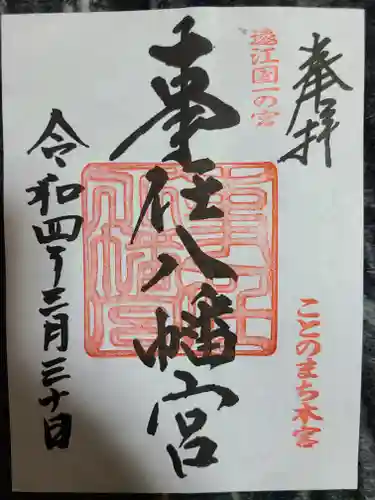 奉拝
遠江国一の宮
事任八幡宮
ことのまち本宮
令和四年三月三十日